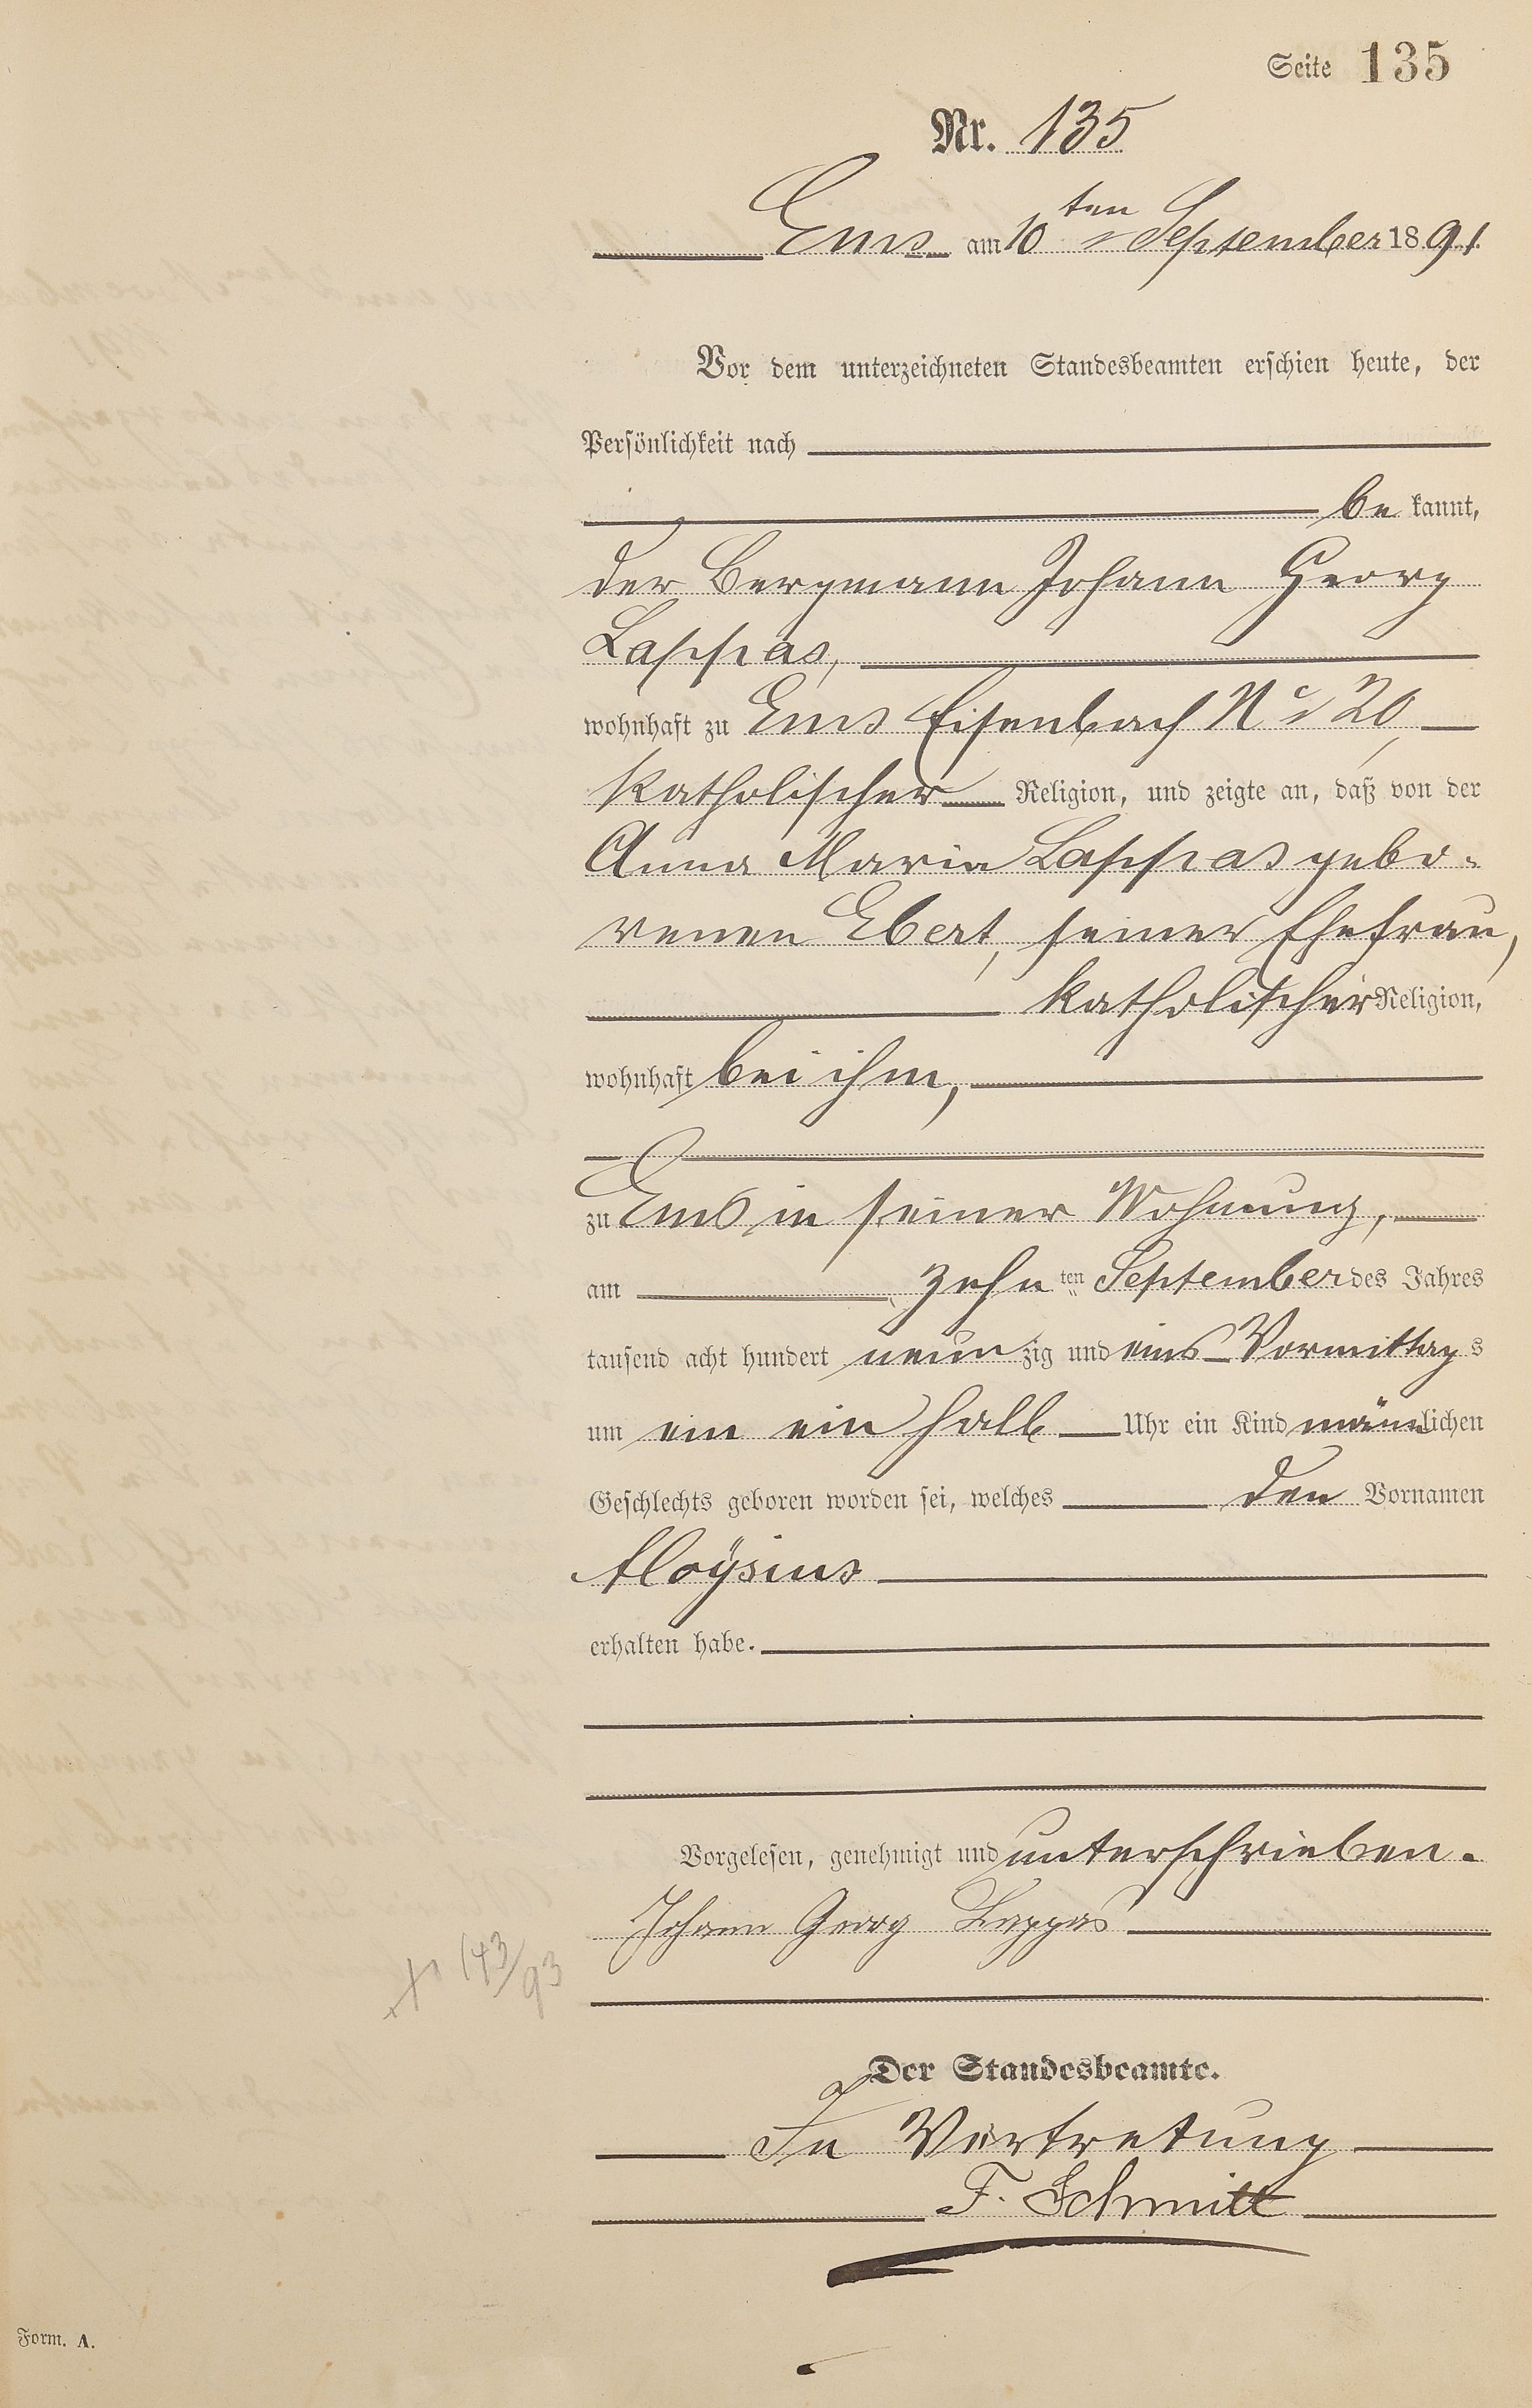 Seite 135
Nr. 135
Ems am 10ten September 1891
Vor dem unterzeichneten Standesbeamten erschien heute, der
Persönlichkeit nach
be kannt,
der Bergmann Johann Georg
Lappas,
wohnhaft zu Ems Eisenbach No 20,
katholischer Religion, und zeigte an, daß von der
Anna Maria Lappas gebo-
renen Ebert, seiner Ehefrau,
katholischer Religion,
wohnhaft bei ihm,
zu Ems in seiner Wohnung,
am zehn ten September des Jahres
tausend acht hundert neun zig und eins Vormittag s
um ein ein halb Uhr ein Kind männlichen
Geschlechts geboren worden sei, welches den Vornamen
Aloÿsius
erhalten habe.
Vorgelesen, genehmigt und unterschrieben.
Johann Georg Lappas
+ 143/93
Der Standesbeamte.
In Vertretung
F. Schmitt
Form. A.